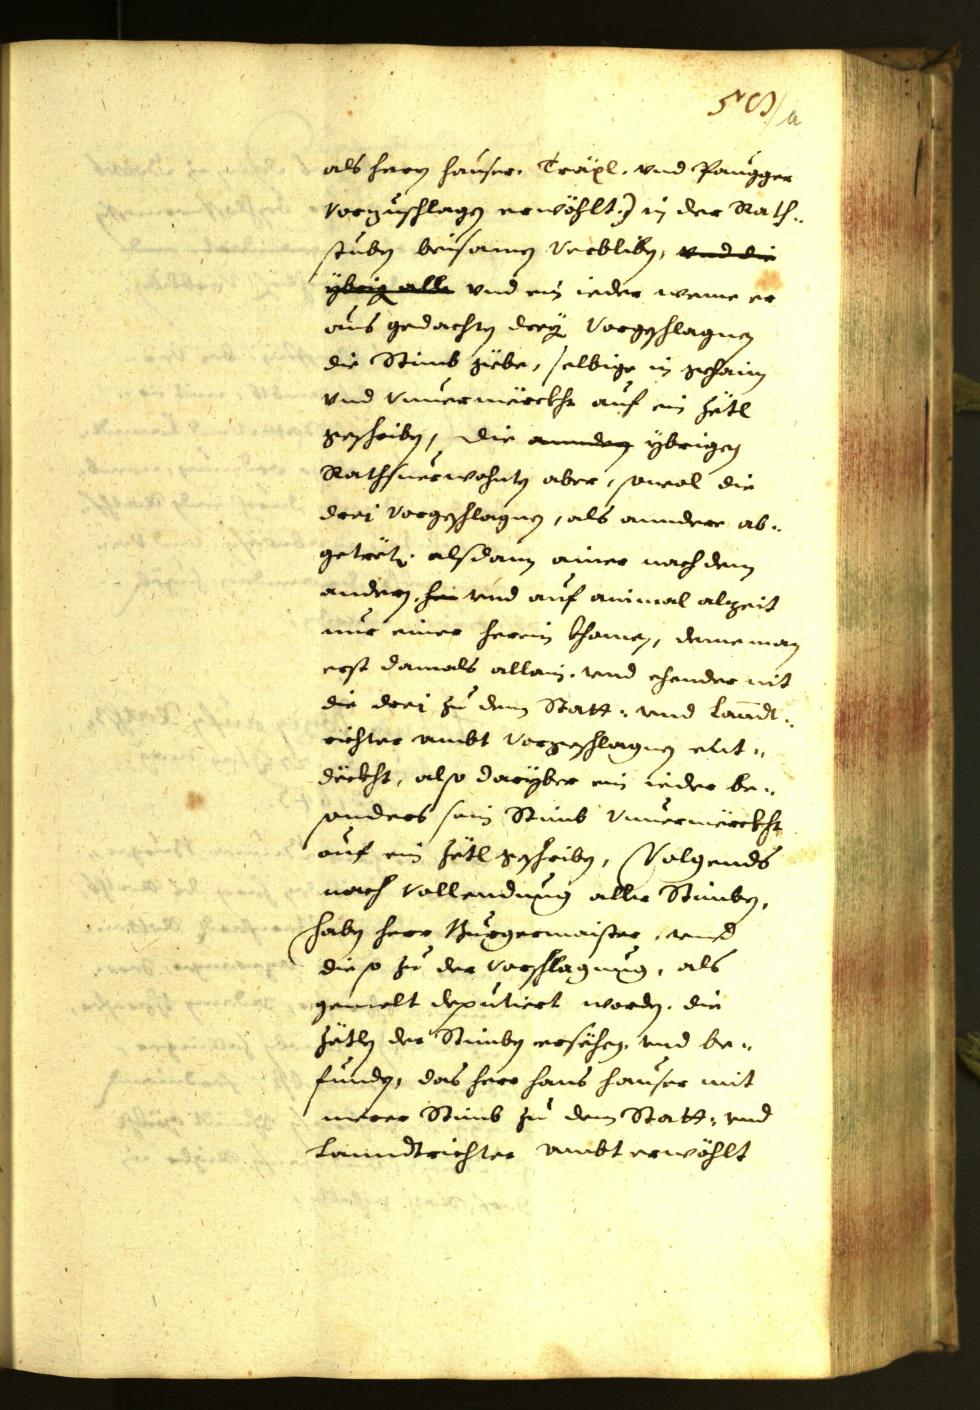 58/a
als herrn Hauser. Träxl. vnd Paugger
Vorzuschlagen erwöhlt:) in der Rath¬
stuben beisamen Verbliben, vnd die
ybrig alle vnd ein ieder weme er
aus gedachten dreÿ Vorgeschlagnen
die Stimb gebe, selbige in gehaim
vnd Vnuermörckht auf ein Zötl
geschriben, die anndern ybrigen
Rathsuerwohnte aber, sowol die
drei Vorgeschlagnen, als anndere ab¬
getrëtn. alsdann ainer nach dem
andern. hin vnd auf ainmal alzeit
nur einer herein khomen, deme man
erst damals allain. vnd ehender nit
die drei zu dem Statt- vnd Lanndt¬
richter ambt Vorgeschlagnen ent¬
döckht, also daryber ein ieder be¬
sonders sein Stimb Vnuermörckht
auf ein Zötl geschriben, Volgends
nach Vollendung aller Stimben,
haben herr Burgermaister. vnd
die so zu der Vorschlagung, als
gemelt deputiert worden. die
Zötln der Stimben ersöhen. vnd be¬
funden, das herr Hans Hauser mit
merer Stimb zu dem Statt- vnd
Lanndtrichter ambt erwöhlt